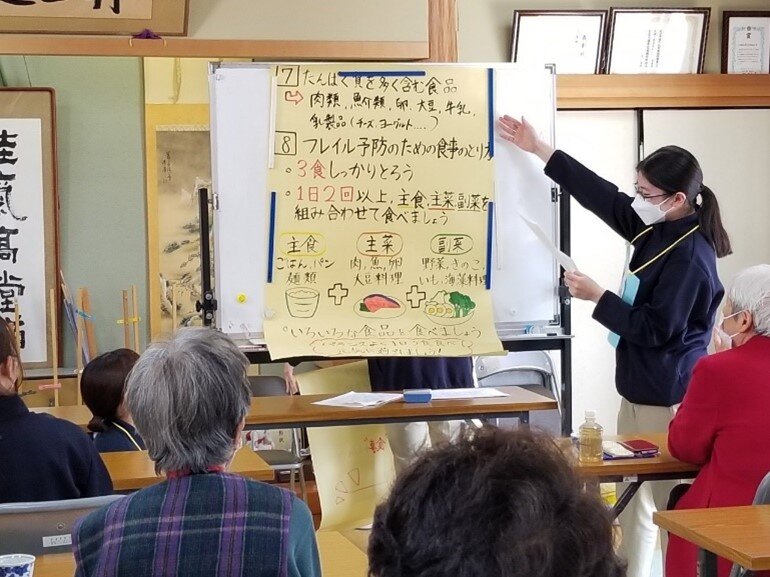 7 たんぱく質を多く含む食品
⇨ 肉類、魚介類、卵、大豆、牛乳、
乳製品(チーズ、ヨーグルト.....)
8 フレイル予防のための食事のとり方
・3食しっかりとろう
・1日2回以上、主食、主菜、副菜を
組み合わせて食べましょう
主食 主菜 副菜
ごはん、パン 肉、魚、卵 野菜、きのこ、
麺類 大豆料理 いも、海藻料理
+ +
・いろいろな食品を食べましょう